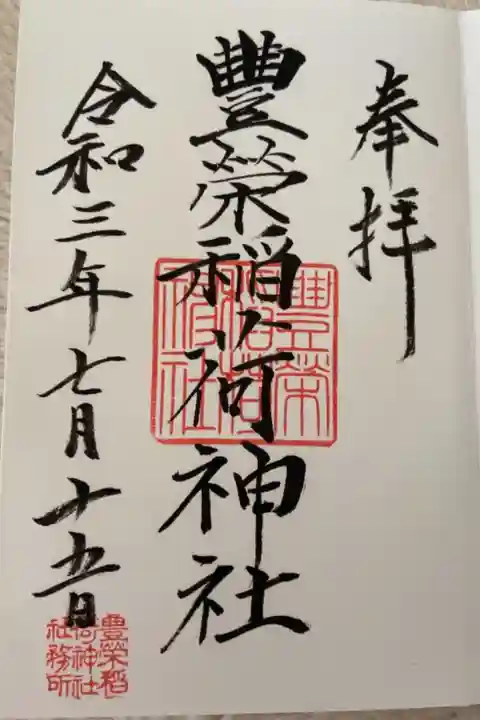 奉拝
豐榮稻荷神社
令和三年七月十五日
豊榮稲
荷神社
社務所